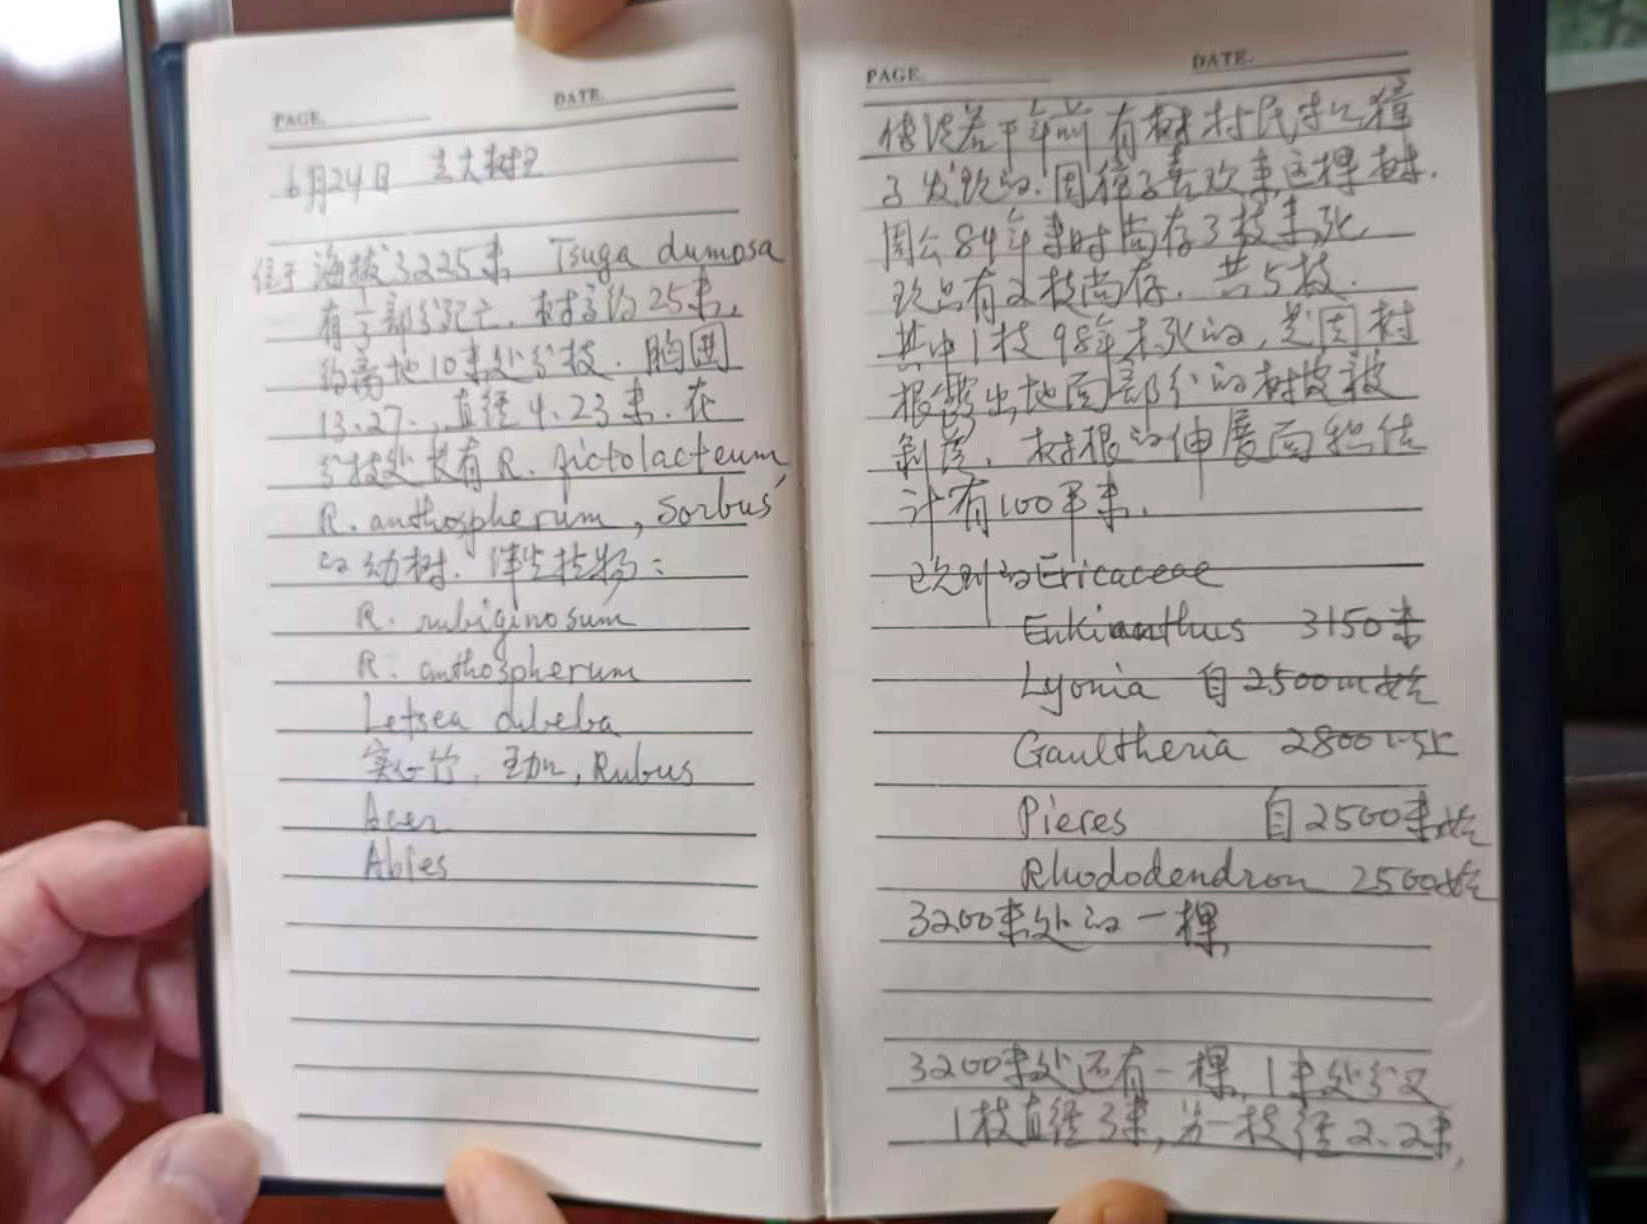 PAGE.
DATE.
6月24日 大树
位于海拔3225米 Tsuga dumosa
有部分死亡.树高约25米,
约离地10米处分枝.胸围
13.27.,直径4.23米.在
分枝处长有R. fictolacteum
R. anthospherum, Sorbus
的幼树.
R. rubiginosum
R. anthospherum
Letsea cubeba
实心竹, Rubus
Acer
Abies
PAGE.
DATE.
传说若干年前有村民
发现的.因喜欢来这棵树.
周公84年来时尚存3枝未死
现只有2枝尚存.共5枝.
其中1枝98年未死的,是因树
根露出地面部分的树皮被
剥落.树根的伸展面积估
计有100平米.
的Ericaceae
Enkianthus 3150米
Lyonia 自2500m始
Gaultheria 2800以上
Pieres 自2500米始
Rhododendron 2500始
3200米处的一棵
3200米处还有一棵,1米处分叉
1枝直径3米,另一枝径2.2米,